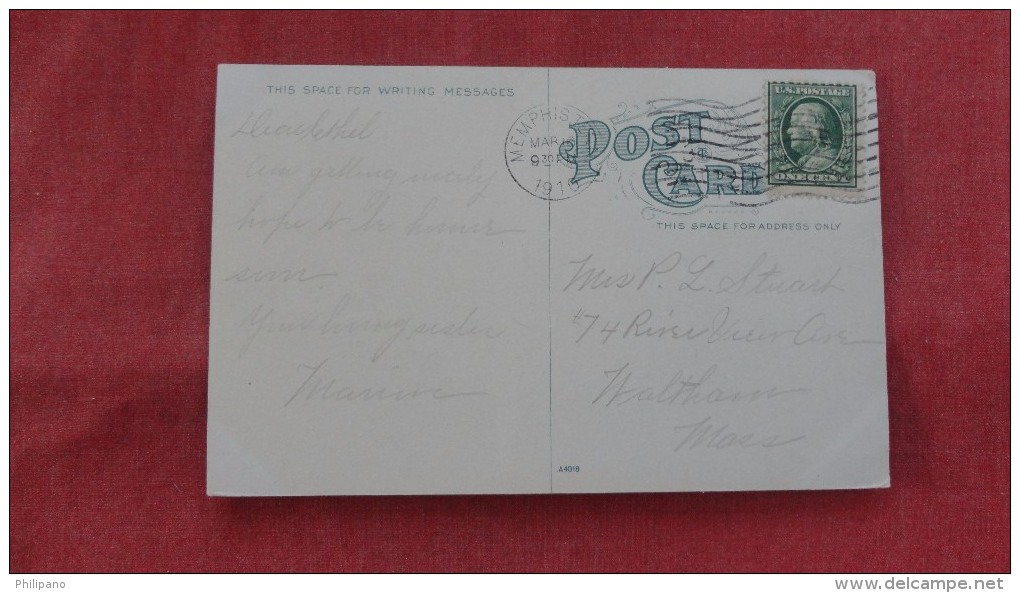 THIS SPACE FOR WRITING MESSAGES
Dear Ethel
Am getting ready
hope to be home
soon.
Your loving sister
MEMPHIS T
MAR
1910
POST
CARD
U.S. POSTAGE
ONE CENT
THIS SPACE FOR ADDRESS ONLY
Mrs P. L. Stuart
#74 River View Ave
Waltham
Mass
A4018
Philipano
www.delcampe.net